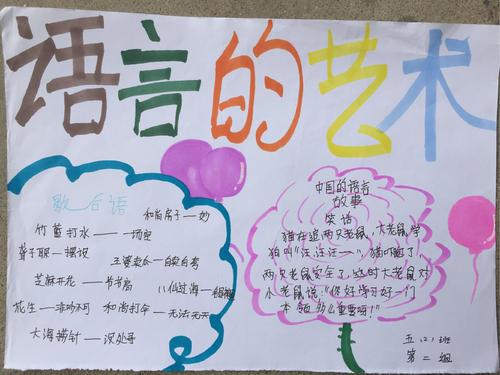 语言的艺术
歇后语
和尚房子——妙
竹篮打水——一场空
聋子职—摆设
王婆卖瓜—自卖自夸
芝麻开花—节节高
八仙过海—
花生—非吵不可 和尚打伞—无法无天
大海捞针—深处寻
中国的语言
故事
笑话
猫在追两只老鼠,大老鼠学
狗叫"汪汪汪——",猫吓跑了,
两只老鼠安全了,这时大老鼠对
小老鼠说:"你好学习好一门
本领多么重要呀!"
五(2)班
第二组